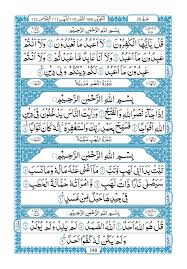 بِسْمِ اللهِ الرَّحْمٰنِ الرَّحِيْمِ
قُلْ يٰٓاَيُّهَا الْكٰفِرُوْنَ لَاۤ اَعْبُدُ مَا تَعْبُدُوْنَ وَلَاۤ اَنْتُمْ
عٰبِدُوْنَ مَاۤ اَعْبُدُ وَلَاۤ اَنَا عَابِدٌ مَّا عَبَدْتُّمْ وَلَاۤ اَنْتُمْ
عٰبِدُوْنَ مَاۤ اَعْبُدُ لَكُمْ دِيْنُكُمْ وَلِيَ دِيْنِ
بِسْمِ اللهِ الرَّحْمٰنِ الرَّحِيْمِ
اِذَا جَآءَ نَصْرُ اللهِ وَالْفَتْحُ وَرَاَيْتَ النَّاسَ يَدْخُلُوْنَ فِيْ
دِيْنِ اللهِ اَفْوَاجًا فَسَبِّحْ بِحَمْدِ رَبِّكَ وَاسْتَغْفِرْهُ اِنَّهٗ كَانَ تَوَّابًا
بِسْمِ اللهِ الرَّحْمٰنِ الرَّحِيْمِ
تَبَّتْ يَدَاۤ اَبِيْ لَهَبٍ وَّتَبَّ مَاۤ اَغْنٰى عَنْهُ مَالُهٗ وَمَا كَسَبَ
سَيَصْلٰى نَارًا ذَاتَ لَهَبٍ وَّامْرَاَتُهٗ حَمَّالَةَ الْحَطَبِ
فِيْ جِيْدِهَا حَبْلٌ مِّنْ مَّسَدٍ
بِسْمِ اللهِ الرَّحْمٰنِ الرَّحِيْمِ
قُلْ هُوَ اللهُ اَحَدٌ اَللهُ الصَّمَدُ لَمْ يَلِدْ
وَلَمْ يُوْلَدْ وَلَمْ يَكُنْ لَّهٗ كُفُوًا اَحَدٌ